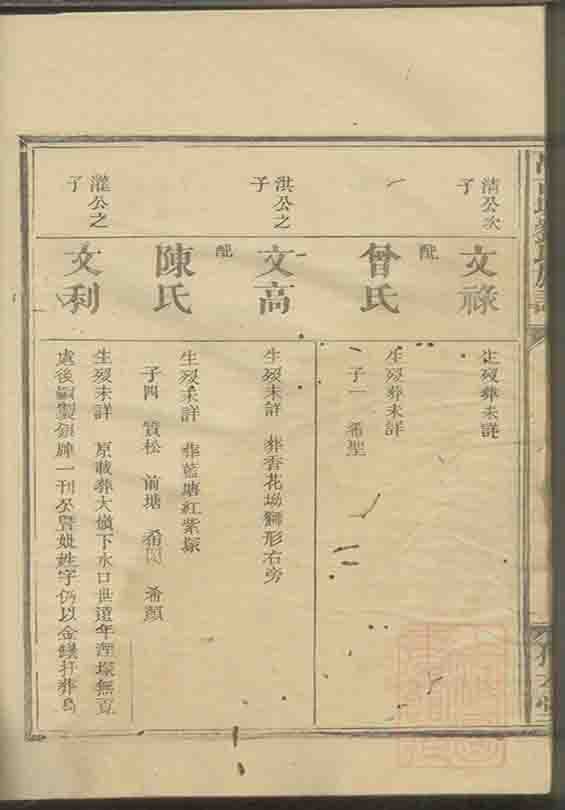 清公次子
文祿
生歿葬未詳
配
曾氏
生歿葬未詳
子一 希聖
洪公之子
文高
生歿未詳 葬香花坳獅形右旁
配
陳氏
生歿未詳 葬藍塘紅紫塚
子四 質松 前塘 希閔 希顏
灌公之子
文利
生歿未詳 原載葬大嶺下水口世遠年湮塚無頁
處後嗣製銀牌一刊公暨妣姓字仍以金鑲扞葬烏